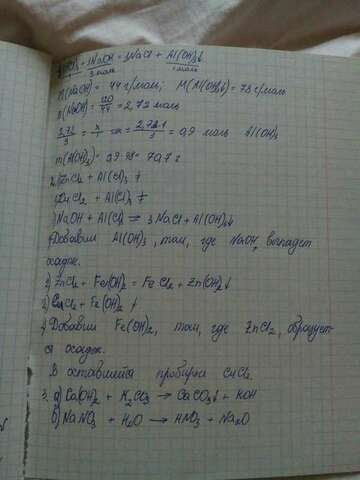 AlCl₃ + 3NaOH = 3NaCl + Al(OH)₃↓
3 моль 1 моль
M(NaOH) = 44 г/моль; M(Al(OH)₃↓) = 78 г/моль
n(NaOH) = 120/44 = 2,72 моль
2,72/3 = x/1 = 2,72·1/3 = 0,9 моль Al(OH)₃
m(Al(OH)₃) = 0,9·78 = 70,7 г
2. 1) ZnCl₂ + Al(Cl)₃ ≠
CuCl₂ + Al(Cl)₃ ≠
3NaOH + AlCl₃ = 3NaCl + Al(OH)₃↓
Добавим Al(OH)₃, там, где NaOH, выпадет
осадок.
2) ZnCl₂ + Fe(OH)₂ = FeCl₂ + Zn(OH)₂↓
3) CuCl₂ + Fe(OH)₂ ≠
Добавим Fe(OH)₂, там, где ZnCl₂, образует
ся осадок.
В оставшейся пробирке CuCl₂.
3. а) Ca(OH)₂ + K₂CO₃ → CaCO₃↓ + KOH
б) NaNO₃ + H₂O → HNO₃ + Na₂O